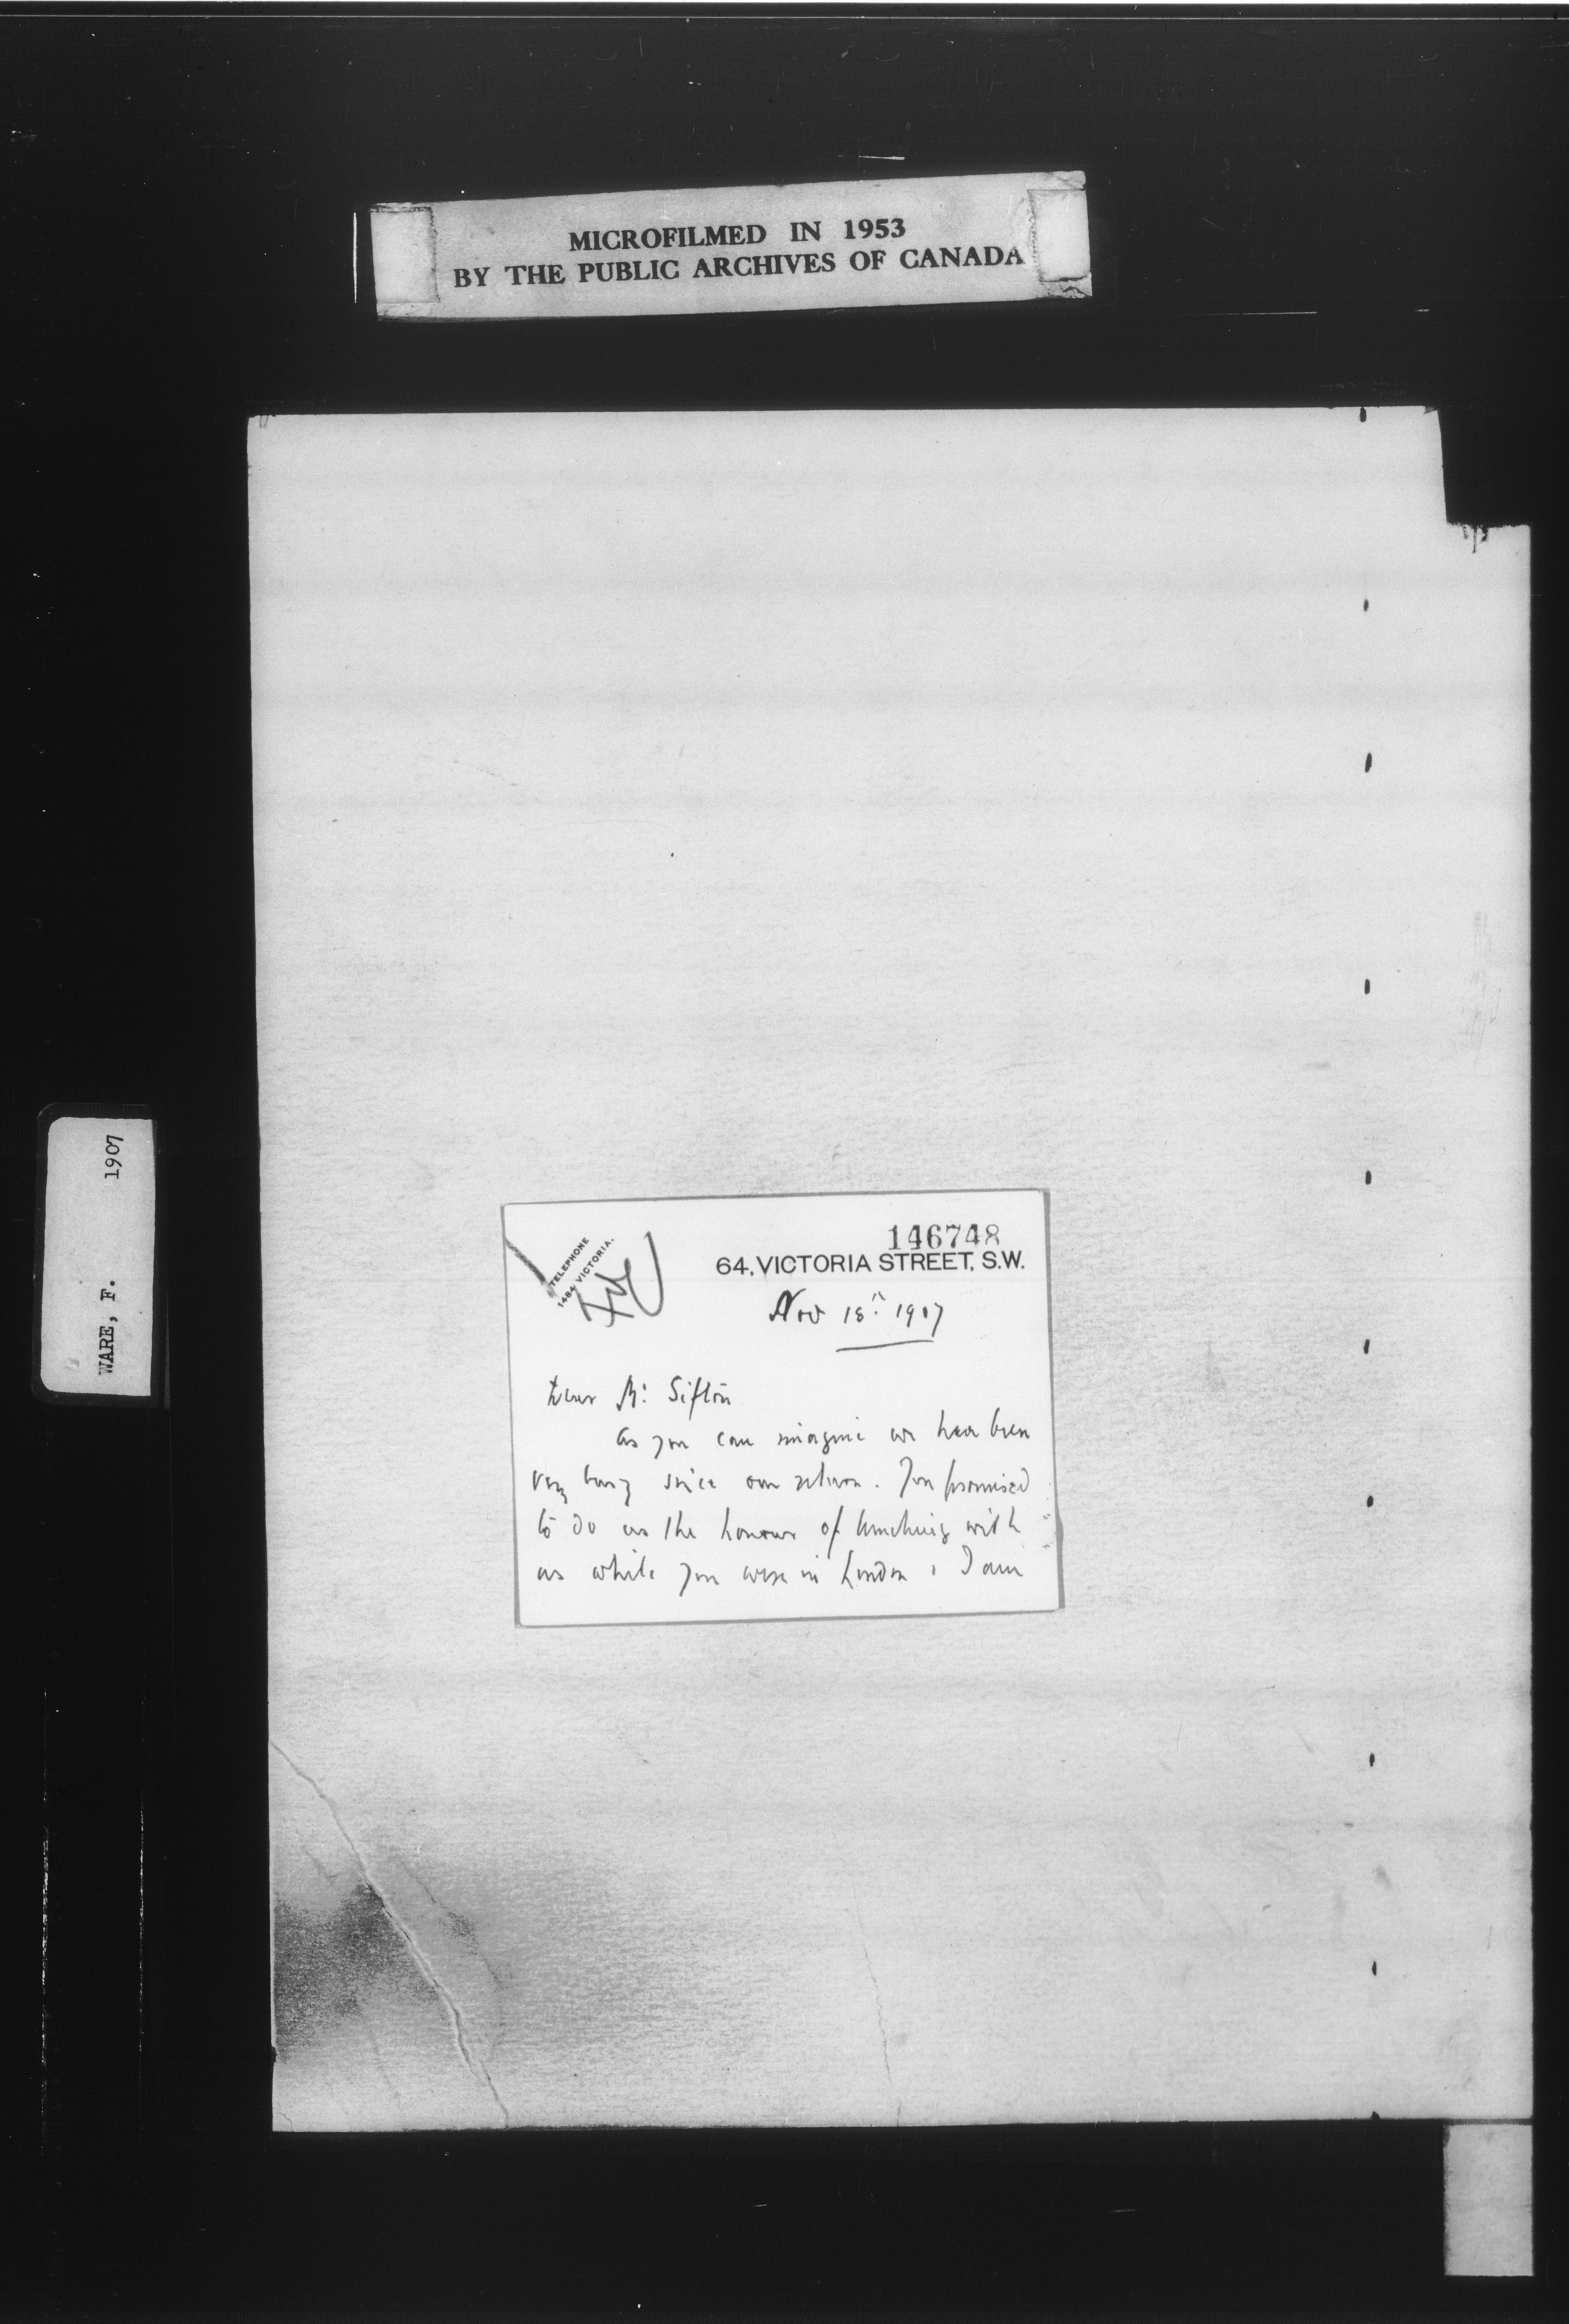 MICROFILMED IN 1953
BY THE PUBLIC ARCHIVES OF CANADA
WARE, F. 1907
TELEPHONE
1484 VICTORIA.
146748
64, VICTORIA STREET, S.W.
Nov 18th 1907
Dear Mr. Sifton
As you can imagine we have been
very busy since our return. You promised
to do us the honour of lunching with
us while you were in London & I am